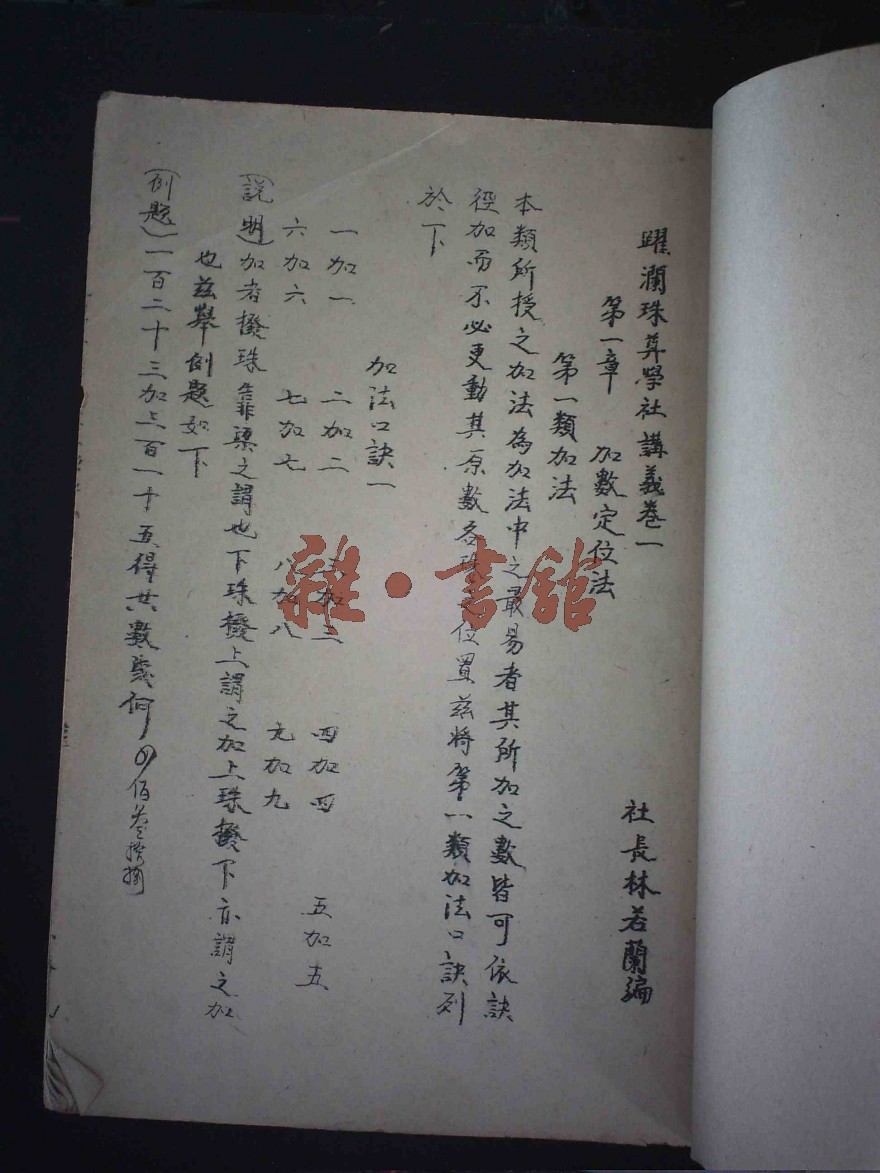 躍瀾珠算學社講義卷一
社長林若蘭編
第一章 加數定位法
第一類加法
本類所授之加法為加法中之最易者其所加之數皆可依訣
徑加而不必更動其原數各珠之位置茲將第一類加法口訣列
於下
加法口訣一
一加一 二加二 三加三 四加四 五加五
六加六 七加七 八加八 九加九
(說明)加者撥珠靠梁之謂也下珠撥上謂之加上珠撥下亦謂之加
也茲舉例題如下
(例題)一百二十三加上百一十五得共數幾何
雜·書館